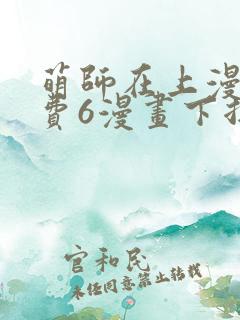 萌師在上漫
費6漫畫下拉
官和民
未任同意禁止转载